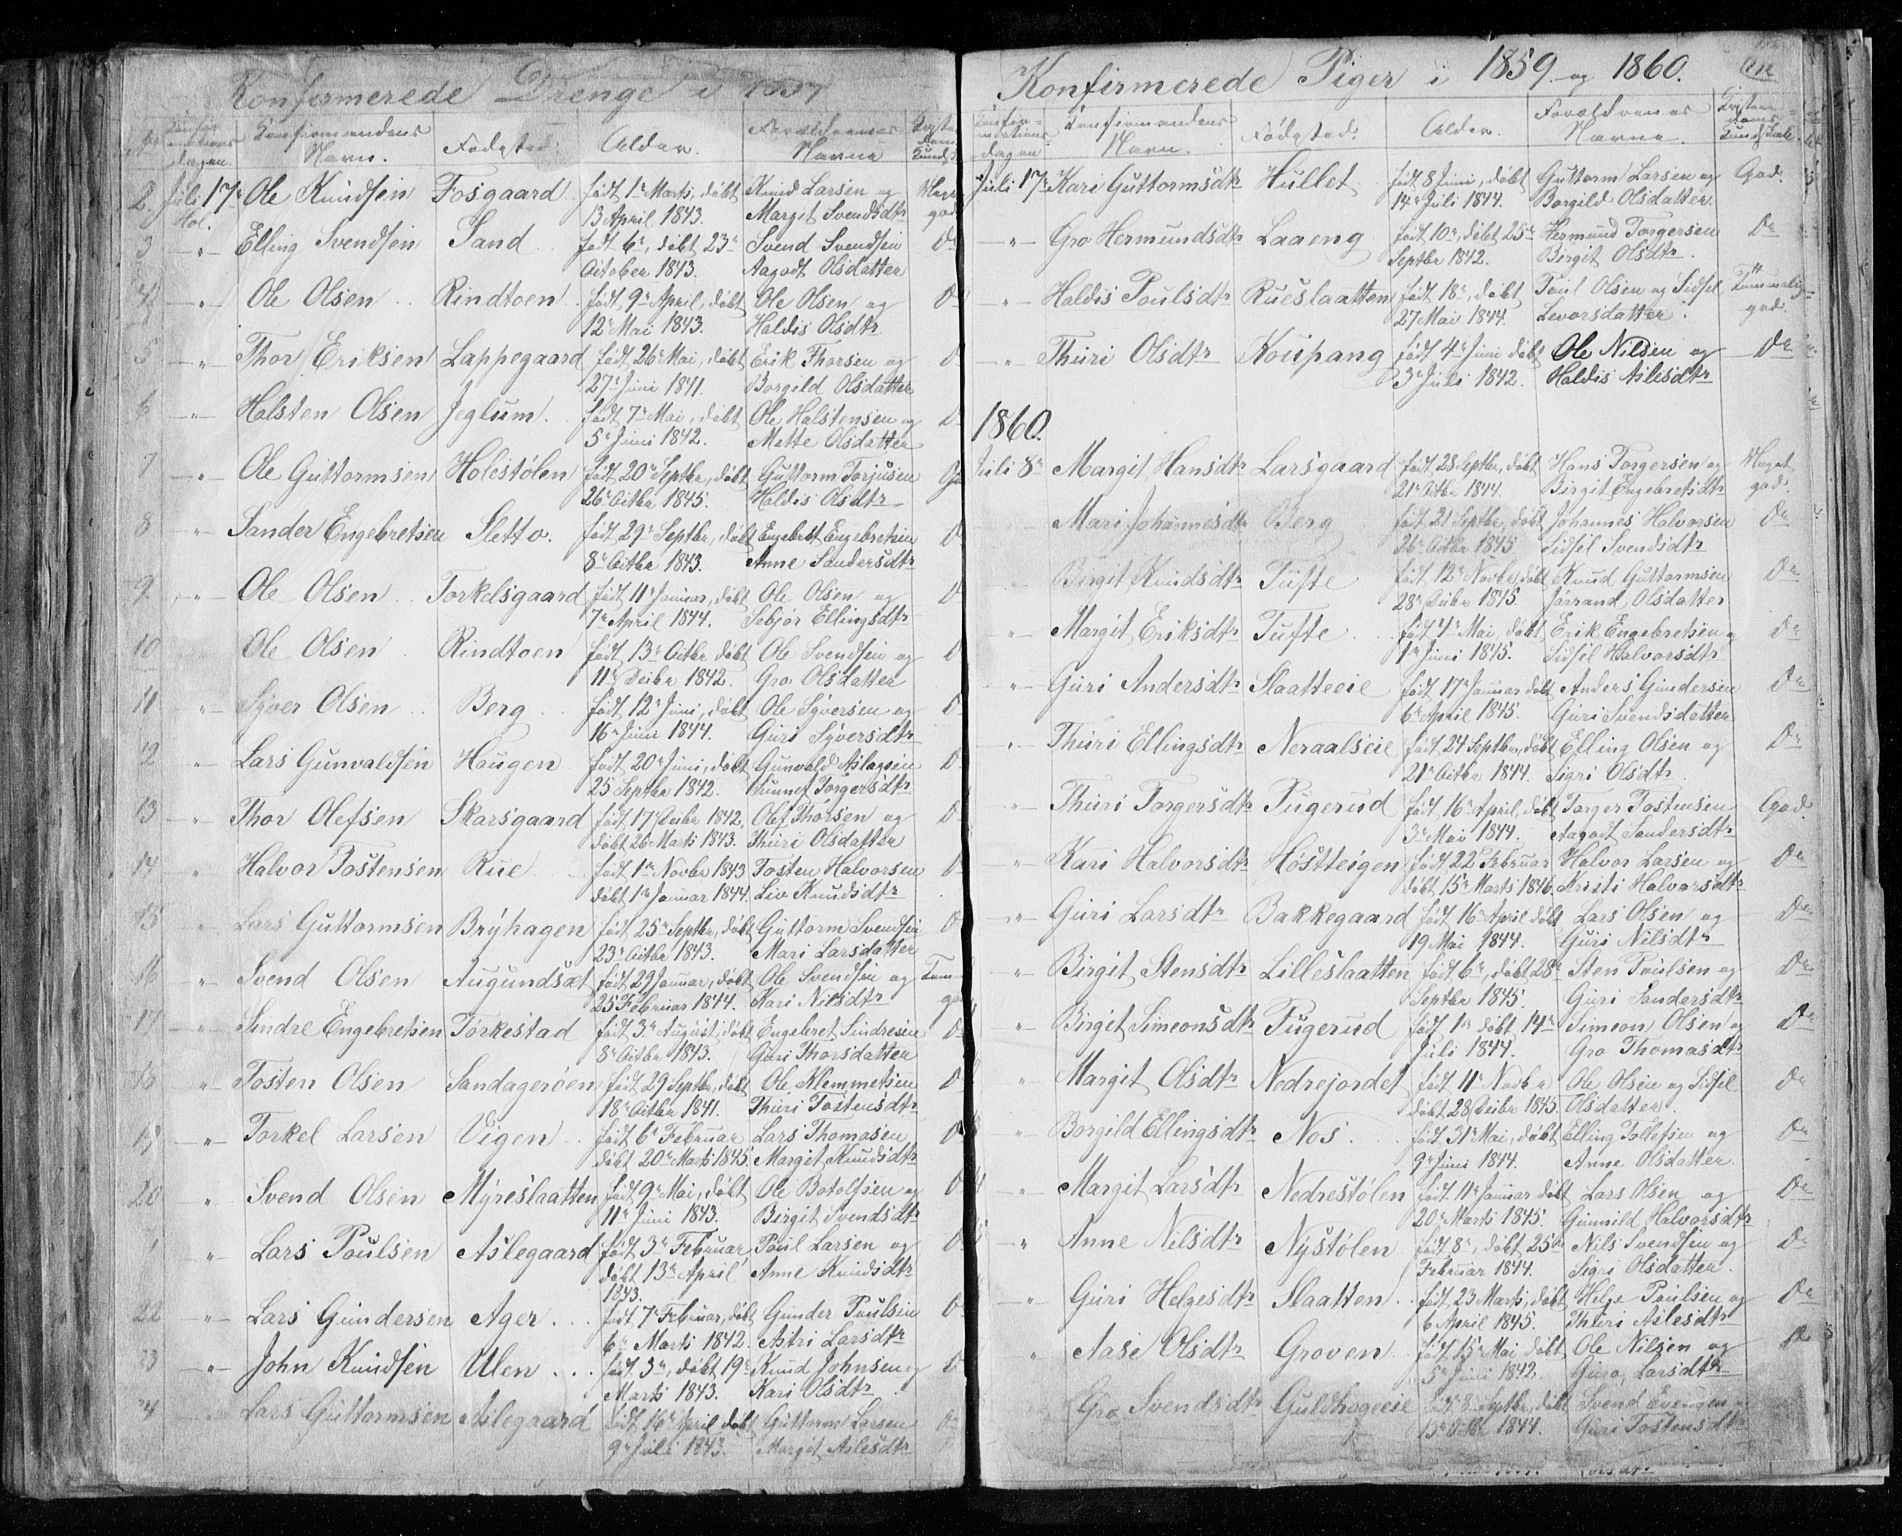 Konfirmerede Drenge i
Konfirmandens Navn. Fødested. Alder. Forældrenes Navne
2. Juli 17de Ole Knudsen Fosgaard født 1ste Marts, døbt Knud Larsen og Meget
Hol. 3 April 1843. Margit Svendsdtr god
3 -"- Elling Svendsen Sand født 6te, døbt 23de Svend Svendsen Do
October 1843. Aagodt Olsdatter
4 -"- Ole Olsen Rindtoen født 9de April, døbt Ole Olsen og
12te Mai 1843. Haldis Olsdtr
5 -"- Thor Eriksen Lappegaard født 26de Mai, døbt Erik Thorsen og
27de Juni 1841. Borgild Olsdatter
6 -"- Halsten Olsen Jeglum. født 7de Mai, døbt Ole Halstensen og
5te Juni 1842. Mette Olsdatter
7 -"- Ole Guttormsen Holestølen født 20de Septbr, døbt Guttorm Torjusen
26de Octbr 1845. Haldis Olsdtr
8 -"- Sander Engebretsen Sletto. født 29de Septbr, døbt Engebret Engebretsen
8de Octbr 1843. Anne Sandersdtr
9 -"- Ole Olsen Torkelsgaard født 11te Januar, døbt Ole Olsen og
7de April 1844. Sebjør Ellingsdtr
10 Ole Olsen Rindtoen født 13de Octbr døbt Ole Svendsen og
11te Decbr 1842. Gro Olsdatter
11 -"- Syver Olsen Berg født 12te Juni, døbt Ole Syversen og
16de Juni 1844. Guri Syversdtr
12 -"- Lars Gunvaldsen Haugen født 20de Juni, døbt Gunvald Aslagsen
25 Septbr 1842. Torgersdtr
13 -"- Thor Olefsen Skarsgaard født 17de Decbr 1842, Olef Thorsen og
døbt 26de Marts 1843. Thuri Olsdatter
14 -"- Halvor Tostensen Rue født 1ste Novbr 1843 Tosten Halvorsen
døbt 1ste Januar 1844. Liv Knudsdtr
15 -"- Lars Guttormsen Bryhagen født 25de Septbr, døbt Guttorm Svendsen
23de Octbr 1843. Mari Larsdatter
16 " Svend Olsen Augundsæt født 29 Januar, døbt Ole Svendsen og
25 Februar 1844. Kari Nilsdtr
17 -"- Sindre Engebretsen Torkestad født 3de August, døbt Engebret Sindresen
8de Octbr 1843. Guri Thorsdatter
18 " Tosten Olsen Sandagerøen født 29 Septbr, døbt Ole Klemmetsen
18de Octbr 1841. Thuri Tostensdtr
19 " Torkel Larsen Vigen født 6te Februar Lars Thomasen
døbt 20de Marts 1845. Margit Knudsdtr
20 " Svend Olsen Myreslaatten født 9de Mai, døbt Ole Botolfsen og
11te Juni 1843. Birgit Svendsdtr
" Lars Poulsen Aslegaard født 3de Februar Poul Larsen og
døbt 13de April Anne Knudsdtr
1843.
22 -"- Lars Gundersen Ager født 7de Februar, døbt Gunder Poulsen
6te Marts 1842. Astri Larsdtr
-"- John Knudsen Ulen født 3de, døbt 19de Knud Johnsen og
Marts 1843. Kari Olsdtr
Lars Guttormsen Aslegaard født 16de April døbt Guttorm Larsen
9de Juli 1843. Margit Aslesdtr
Konfirmerede Piger i 1859. og 1860.
Konfirmationsdagen Konfirmandens Navn. Fødested. Alder. Forældrenes Navne.
Juli 17de Kari Guttormsdtr Hullet født 8 Juni, døbt Guttorm Larsen og God.
14de Juli 1844. Borgild Olsdatter
-"- Gro Hermundsdtr Laaeng født 10de, døbt 25de Hermund Torgersen Do
Septbr 1842. Birgit Olsdtr.
-"- Haldis Poulsdtr Rueslaatten født 18de, døbt Poul Olsen og Sidsel Temmelig
27 Mai 1844. Levorsdatter. god.
-"- Thuri Olsdtr født 4de Juni døbt Ole Nilsen og Do
3de Juli 1842. Haldis Aslesdtr
1860.
Juli 8de Margit Hansdtr Larsgaard født 28 Septbr, døbt Hans Torgersen og Meget
21de Octbr 1844. Birgit Engebretsdtr god.
Mari Johannesdtr Berg født 21 Septbr, døbt Johannes Halvorsen Do
26de Octbr 1845 Sidsel Svendsdtr
Birgit Knudsdtr Tufte født 12te Novbr, døbt Knud Guttormsen Do
28de Decbr 1845. Jørrand Olsdatter
" Margit Eriksdtr Tufte født 4de Mai, døbt Erik Engebretsen og Do
1ste Juni 1845. Sidsel Halvorsdtr
-"- Guri Andersdtr Slaatteeie født 17de Januar døbt Anders Gundersen Do
6te April 1845. Guri Svendsdatter
-"- Thuri Ellingsdtr Neraalseie født 24 Septbr, døbt Elling Olsen og Do
21de Octbr 1844. Sigri Olsdtr.
-"- Thuri Torgersdtr Pugerud født 16de April, døbt Torger Tostensen God.
3de Mai 1844. Aagodt Sandersdtr
" Kari Halvorsdtr Høstteigen født 22 Februar Halvor Larsen og Do
døbt 15de Marts 1846. Kristi Halvorsdtr
-"- Guri Larsdtr Bakkegaard født 16de April døbt Lars Olsen og Do
19 Mai 1844. Guri Nilsdtr
" Birgit Stensdtr Lilleslaatten født 6te, døbt 28de Sten Poulsen og Do
Septbr 1845. Guri Sandersdtr
" Birgit Simeonsdtr Pugerud født 1ste døbt 14de Simeon Olsen og Do
Juli 1844. Gro Thomasdtr
" Margit Olsdtr Nedrejordet født 11te Novbr Ole Olsen og Sidsel Do
døbt 28 Decbr 1845. Olsdatter.
" Borgild Ellingsdtr Nos født 31te Mai, døbt Elling Tollefsen og Do
9de Juni 1844. Anne Olsdatter.
" Margit Larsdtr Nedrestølen født 11te Januar døbt Lars Olsen og Do
20de Marts 1845. Gunnild Halvorsdtr
" Anne Nilsdtr Nystølen født 8de, døbt 25de Nils Svendsen og Do
Februar 1844. Sigri Olsdatter.
-"- Guri Helgesdtr Slaatten født 23 Marts, døbt Helge Poulsen og Do
6 April 1845. Thuri Aslesdtr
" Aase Olsdtr Groven født 15de Mai døbt Ole Nilsen og Do
5te Juni 1842. Guro Larsdtr
Gro Svendsdtr født 8 Septbr, døbt Svend
13de Octbr 1844. Guri Tostensdtr